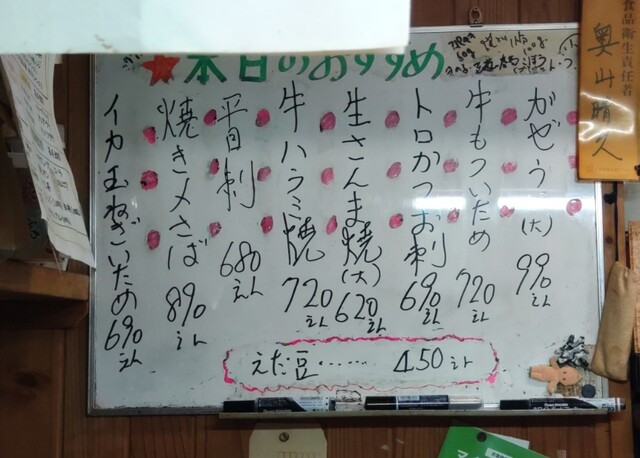 本日のおすすめ
がぜうに(大) 990円
牛もついため 720円
トロかつお刺 690円
生さんま焼(大) 620円
牛ハラミ焼 720円
平目刺 680円
焼き〆さば 890円
イカ玉ねぎいため 690円
えだ豆…… 450円
食品衛生責任者
奥山晴久